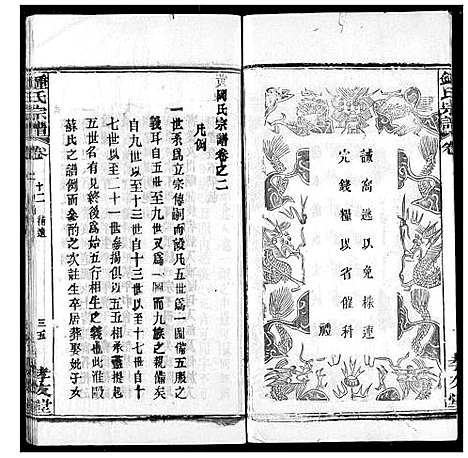 鍾氏宗譜
卷
誡窩逃以免株連
完錢糧以省催科
禮
孝友堂
黃岡氏宗譜卷之二
凡例
一世系爲立宗傳嗣而設凡五世一圖備五服之
義耳自五世至九世又一圖而九族之親備矣
自九世以至十三世自十三世以至十七世自十
七世以至二十一世參揖俱以五五相承蓋提起
五世亦有見終後爲始五行相生之義也今斯譜
蘇氏之譜例而參酌之次註生卒居葬娶妣子女
鍾氏宗譜
卷
三五
孝友堂